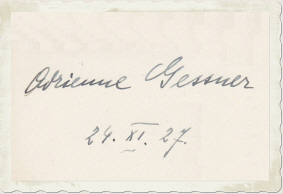 Adrienne Gessner
24. XI. 27.